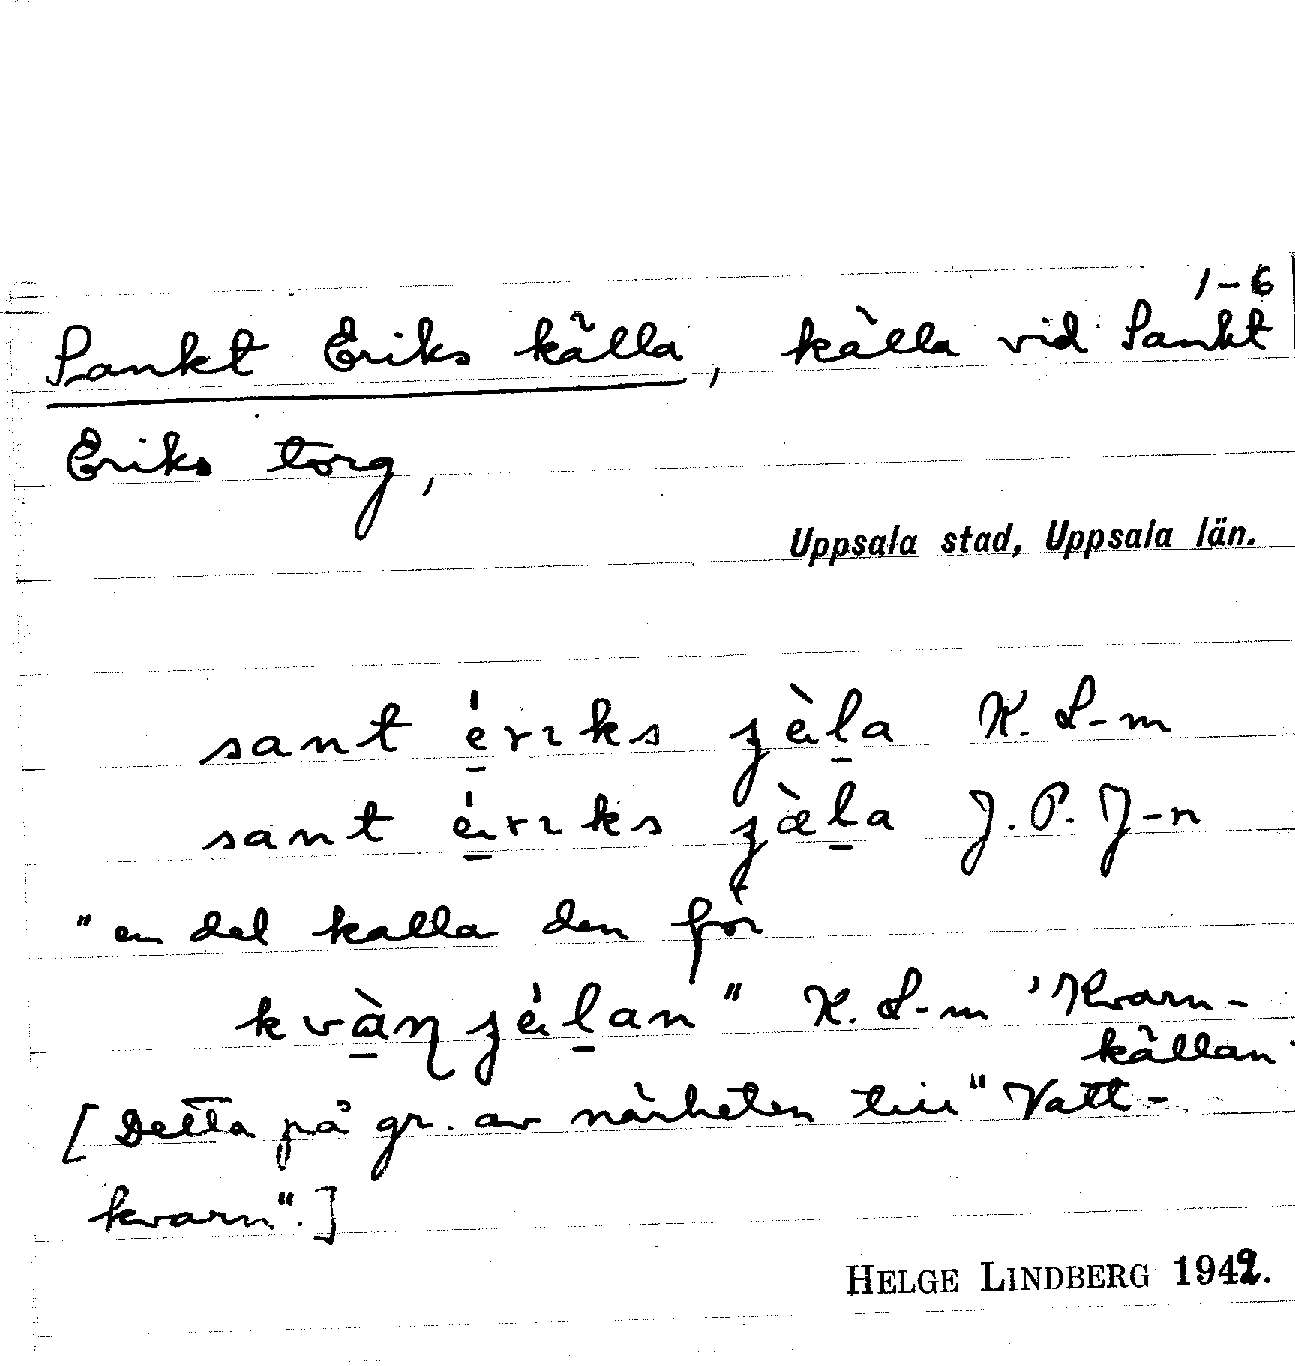 1-6
Sankt Eriks källa, källa vid Sankt
Eriks torg,
Uppsala stad, Uppsala län.
sant K. L-m
sant J. P. J-n
"en del kalla den för
" K. L-m 'Kvarn-
källan'
[Detta på gr. av närheten till "Vatt-
kvarn".]
HELGE LINDBERG 194